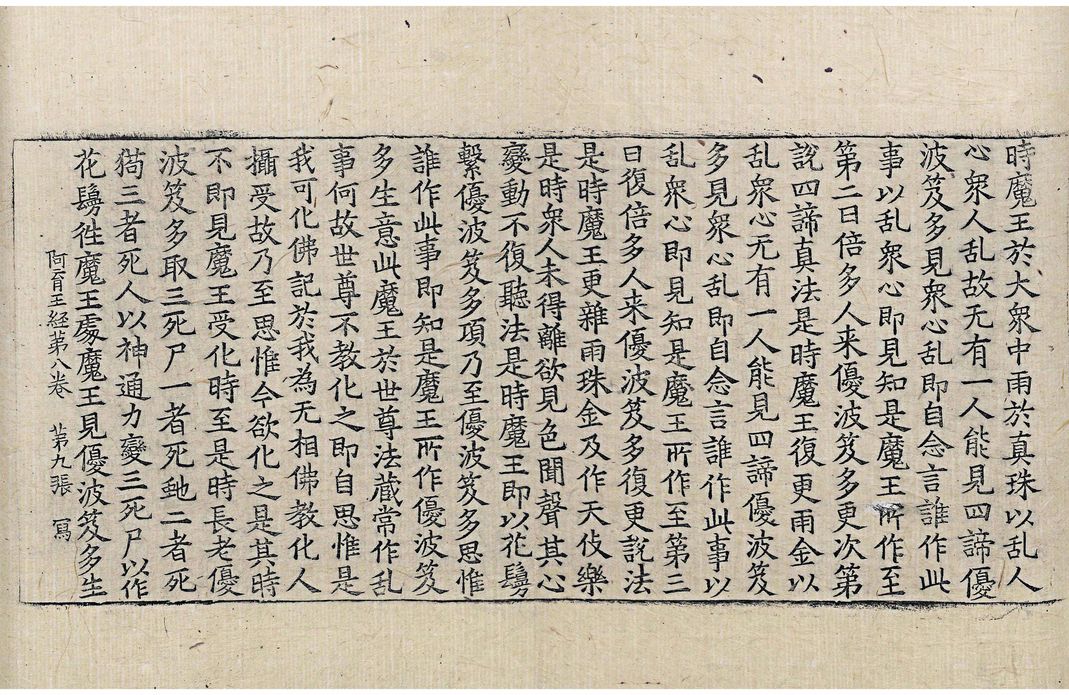 時魔王於大衆中雨於真珠以乱人
心衆人乱故无有一人能見四諦優
波笈多見衆心乱即自念言誰作此
事以乱衆心即見知是魔王所作至
第二日倍多人来優波笈多更次第
說四諦真法是時魔王復更雨金以
乱衆心无有一人能見四諦優波笈
多見衆心乱即自念言誰作此事以
乱衆心即見知是魔王所作至第三
日復倍多人来優波笈多復更說法
是時魔王更雜雨珠金及作天伎樂
是時衆人未得離欲見色聞聲其心
變動不復聽法是時魔王即以花鬘
繫優波笈多項乃至優波笈多思惟
誰作此事即知是魔王所作優波笈
多生意此魔王於世尊法藏常作乱
事何故世尊不教化之即自思惟是
我可化佛記於我為无相佛教化人
攝受故乃至思惟今欲化之是其時
不即見魔王受化時至是時長老優
波笈多取三死尸一者死虵二者死
猗三者死人以神通力變三死尸以作
花鬘徃魔王處魔王見優波笈多生
阿育王経第八卷 第九張 寫